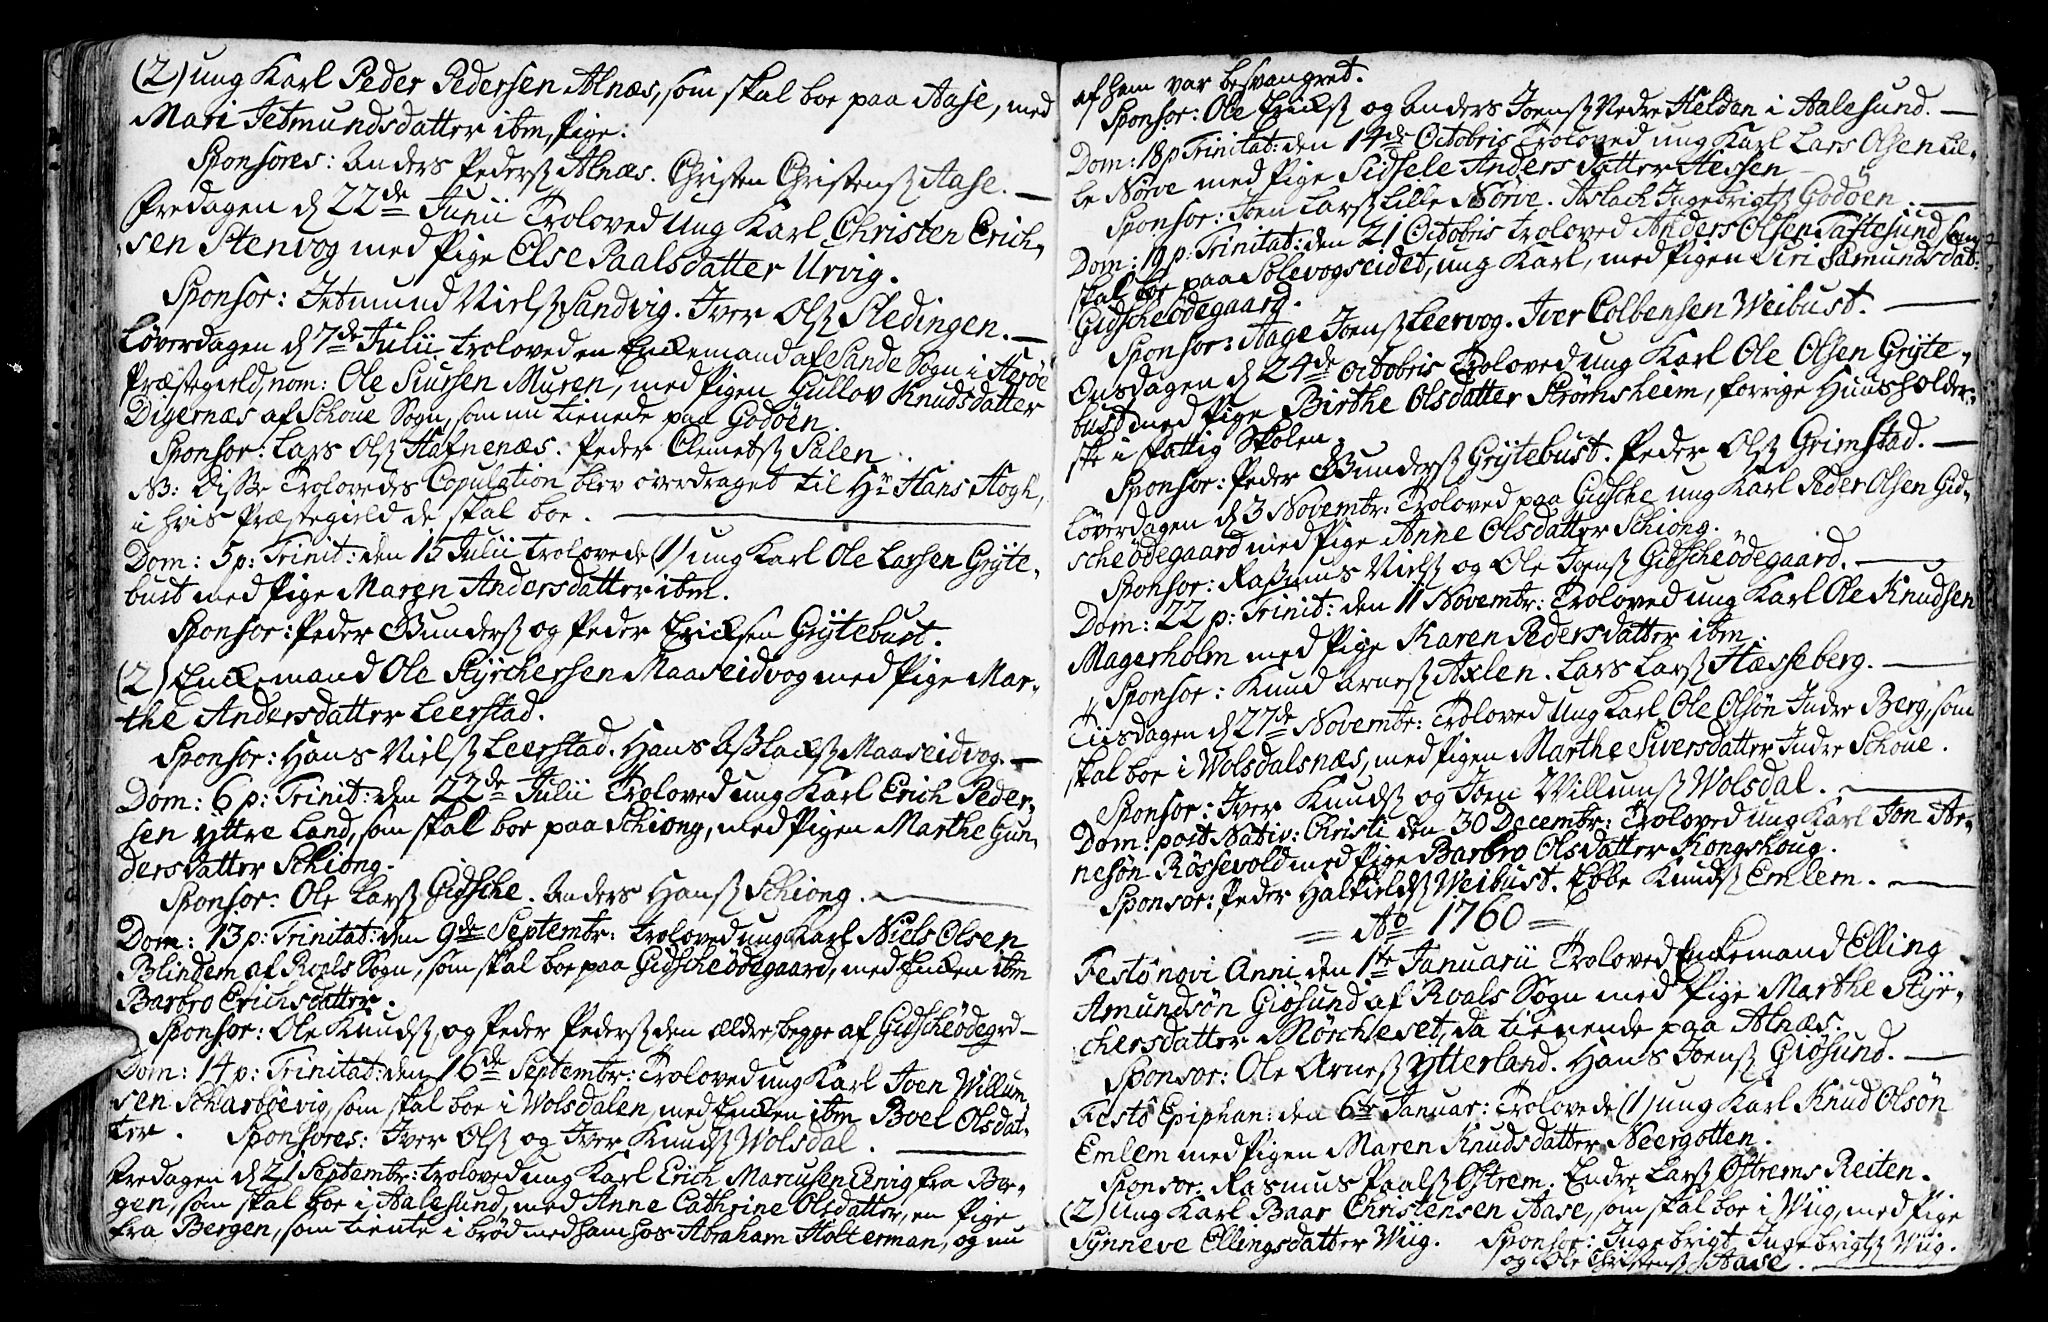 (2) ung Karl Peder Pedersen Alnæs, som skal boe paa Aase, med
Mari Jetmundsdatter ibm, Pige.
Sponsores: Anders Pedersß Alnæs. Christen Christensß Aase.
Fredagen d 22de Junii Troloved ung Karl Christen Erich-
sen Stenvog med Pige Else Paalsdatter Urvig.
Sponsor: Jetmund Nielsß Sandvig. Iver Olsß Sledingen.
Løverdagen d 7de Julii troloved en Enckemand af Sande Sogn i Herøe
Præstegield, nom: Ole Siursen Muren, med Pigen Gullov Knudsdatter
Digernæs af Schoue Sogn, som nu tienede paa Godøen.
Sponsor: Lars Olsß Hafnenæs. Peder Clemetsß Sulen.
NB: Disse Trolovedes Copulation blev overdraget til Hr Hans Hogh,
i hvis Præstegield de skal boe.
Dom: 5 p: Trinit: den 15 Julii trolovede (1) ung Karl Ole Larsen Grÿte-
bust med Pige Maren Andersdatter ibm.
Sponsor: Peder Gundersß og Peder Ericksen Grÿtebust.
(2) Enckemand Ole Stÿrchersen Maaseidvog med Pige Mar-
the Andersdatter Leerstad.
Sponsor: Hans Nielsß Leerstad. Hans Aßlacksß Maaseidvog.
Dom: 6 p: Trinit: den 22de Julii Troloved ung Karl Erich Peder-
sen ÿttre Land, som skal boe paa Schiong, med Pigen Marthe Gun-
dersdatter Schiong.
Sponsor: Ole Larsß Gidsche. Anders Hansß Schiong.
Dom: 13 p: Trinitat: den 9de Septembr: troloved ung Karl Niels Olsen
Blindem af Roals Sogn, som skal boe paa Gidscheødegaard, med Encken ibm
Barbro Erichsdatter.
Sponsor: Ole Knudsß og Peder Pedersß den ældre, begge af Gidscheødegrd
Dom: 14 p: Trinitat: den 16de Septembr: Troloved ung Karl Joen Willum-
sen Scharbøevig, som skal boe i Wolsdalen, med Encken ibm Boel Olsdat-
ter. Sponsores: Iver Olsß og Iver Knudsß Wolsdal.
Fredagen d 21 Septembr: troloved ung Karl Erich Marcusen Ervig fra Ber-
gen, som skal boe i Aalesund, med Anne Cathrine Olsdatter, en Pige
fra Bergen, som tiente i brød med ham hos Abraham Holterman, og nu
af hem var besvangret.
Sponsor: Ole Ericksß og Anders Joensß Nedre Helden i Aalesund.
Dom: 18 p Trinitat: den 14de Octobris Troloved ung Karl Lars Olsen Lil-
le Nørve med Pige Sidsele Andersdatter Hessen
Sponsor: Joen Larsß Lille Nørve. Aslach Ingebrigtsß Godøen.
Dom: 19 p: Trinitat: den 21 Octobris troloved Anders Olsen Taftesund som
skal boe paa Solevogseidet, ung Karl, med Pigen Siri Samundsdat:
Gidscheødegaard.
Sponsor: Aage Joensß Leervog. Iver Colbensen Weibust.
Onsdagen d 24de Octobris Troloved ung Karl Ole Olsen Grÿte-
bust med Pige Birthe Olsdatter Strømsheim, forrige Huusholder-
ske i Fattig Skolen.
Sponsor: Peder Gundersß Grÿtebust. Peder Olsß Grimstad.
Løverdagen d 3 Novembr: Troloved paa Gidsche ung Karl Peder Olsen Gid-
scheødegaard med Pige Anne Olsdatter Schiong.
Sponsor: Raßmus Nielsß og Ole Joensß Gidscheødegaard.
Dom: 22 p: Trinit: den 11 Novembr: Troloved ung Karl Ole Knudsen
Magerholm med Pige Karen Pedersdatter ibm.
Sponsor: Knud Arnesß Axlen. Lars Larsß Hæsseberg.
Tiisdagen d 27de Novembr: Troloved ung Karl Ole Olsøn Indre Berg, som
skal boe i Wolsdalsnæs, med Pigen Marthe Siversdatter Indre Schoue.
Sponsor: Iver Knudsß og Joen Willumsß Wolsdal.
Dom: post Nativ: Christi den 30 Decembr: Troloved ung Karl Jon Ar-
nesøn Røssevold med Pige Barbro Olsdatter Kongshoug.
Sponsor: Peder Halkieldsß Weibust. Ebbe Knudsß Emlem.
= Ao 1760 =
Festô novi Anni den 1ste Januarii Troloved Enckemand Elling
Amundsøn Giøsund af Roals Sogn med Pige Marthe Stÿr-
chersdatter Mørchleset, da tienende paa Alnæs.
Sponsor: Ole Arnesß ÿtterland. Hans Joensß Giøsund.
Festô Epiphan: den 6te Januar: Trolovede (1) ung Karl Knud Olsøn
Emlem med Pigen Maren Knudsdatter Neergotten.
Sponsor: Rasmus Paalsß Østrem. Endre Larsß Østrems Reiten.
(2) ung Karl Baar Christensen Aase, som skal boe i Wiig, med Pige
Sÿnneve Ellingsdatter Wiig. Sponsor: Ingebrigt Ingebrigtsß Wiig.
og Ole Christensß Aase.